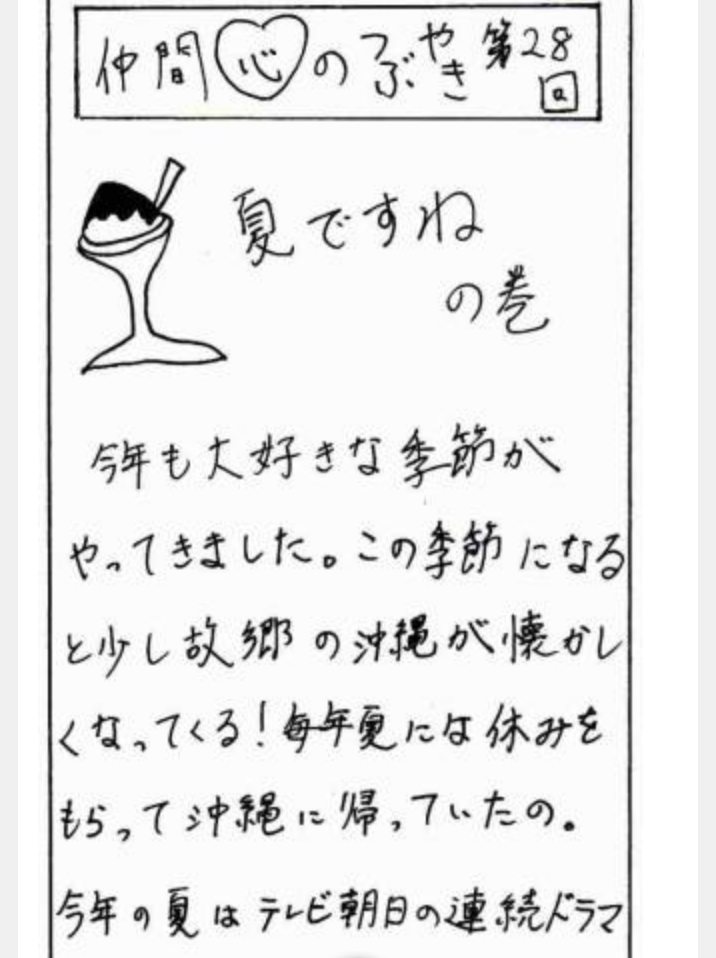 仲間心のつぶやき第28回
夏ですね
の巻
今年も大好きな季節が
やってきました。この季節になる
と少し故郷の沖縄が懐かし
くなってくる!毎年夏には休みを
もらって沖縄に帰っていたの。
今年の夏はテレビ朝日の連続ドラマ